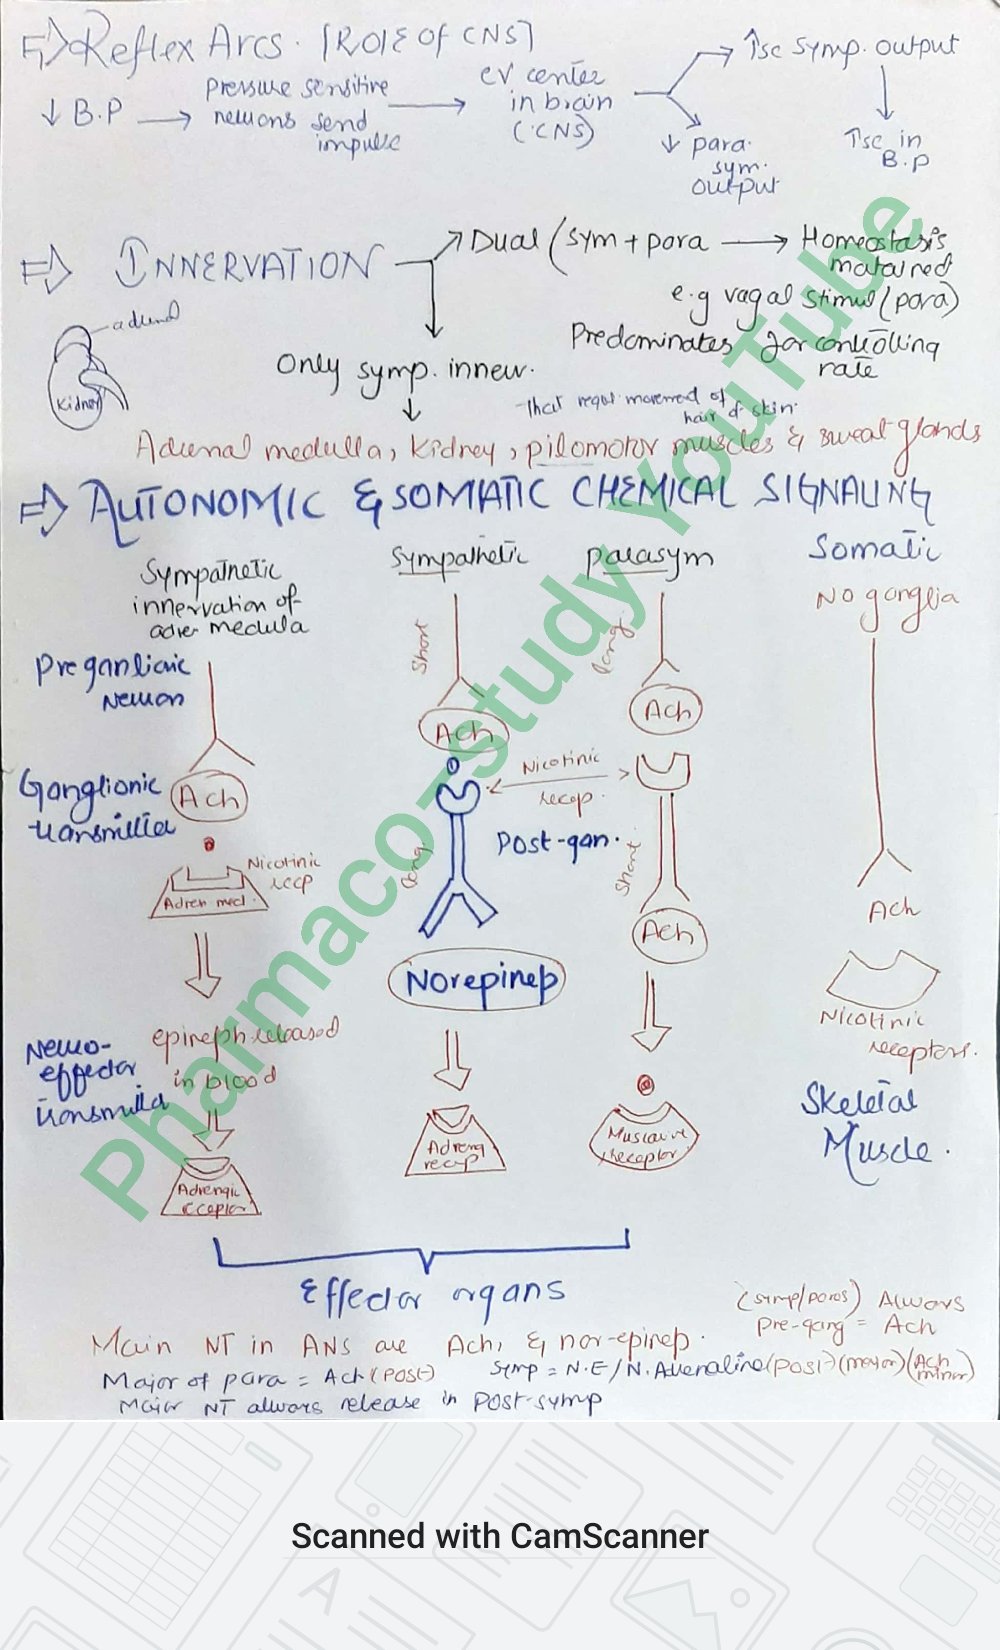 ⇒ Reflex Arcs. [Role of CNS]
↓ B.P → pressure sensitive neurons send impulse → CV center in brain (CNS)
↑sc symp. output
↓ para. sym. output
↑sc in B.P
⇒ INNERVATION
Dual (sym + para → Homeostasis
e.g vagal stimul (para)
Predominates for controlling
rate
adrenal
Kidney
Only symp. innev.
hair of skin.
Adrenal medulla, Kidney, pilomotor muscles & sweat glands
⇒ AUTONOMIC & SOMATIC CHEMICAL SIGNALING
Sympathetic
innervation of
medula
Sympathetic
parasym
Somatic
No ganglia
Short
long
Neuron
Ach
Ach
Ganglionic
Ach
Nicotinic
recep.
Nicotinic
recp
Adren med.
long
Post-gan.
Short
Ach
Ach
Norepinep
Nicotinic
receptors.
Neuro-
effector
epineph released
in blood
Skeletal
Muscle.
receptor
Effector organs
(symp/paras) Always
Pre-gang = Ach
Main NT in ANS are Ach, & nor-epinep.
Major of para = Ach (post)
Symp = N.E / N.Adrenaline (post) (major) (Ach minor)
Major NT always release in post-symp
Pharmaco-study YouTube
Scanned with CamScanner